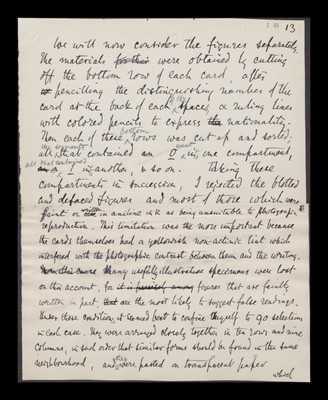 13
We will now consider the figures separately.
The materials for this were obtained by cutting
off the bottom row of each card, after
pencilling the distinguishing number of the
card at the back of each of its spaces & ruling lines
with colored pencils to express the nationality.
Then each of these bottom rows was cut up and sorted;
all segments that contained 0 went in one compartment,
all that contained 1 in another, & so on. Taking these
compartments in succession, I rejected the blotted
and defaced figures and most of those which were
faint or in aniline ink as being unsuitable to photographic
reproduction. This limitation was the more important because
the cards themselves had a yellowish non-actinic tint which
interfered with the photographic contrast between them and the writing.
Many usefully illustrative specimens were lost
on this account, for it is precisely among figures that are faintly
written in part, that are the most likely to suggest false readings.
Under these conditions it seemed best to confine myself to 90 selections
in each case. They were arranged closely together in ten rows and nine
columns, in such order that similar forms should be found in the same
neighbourhood, and they were pasted on transparent paper
which